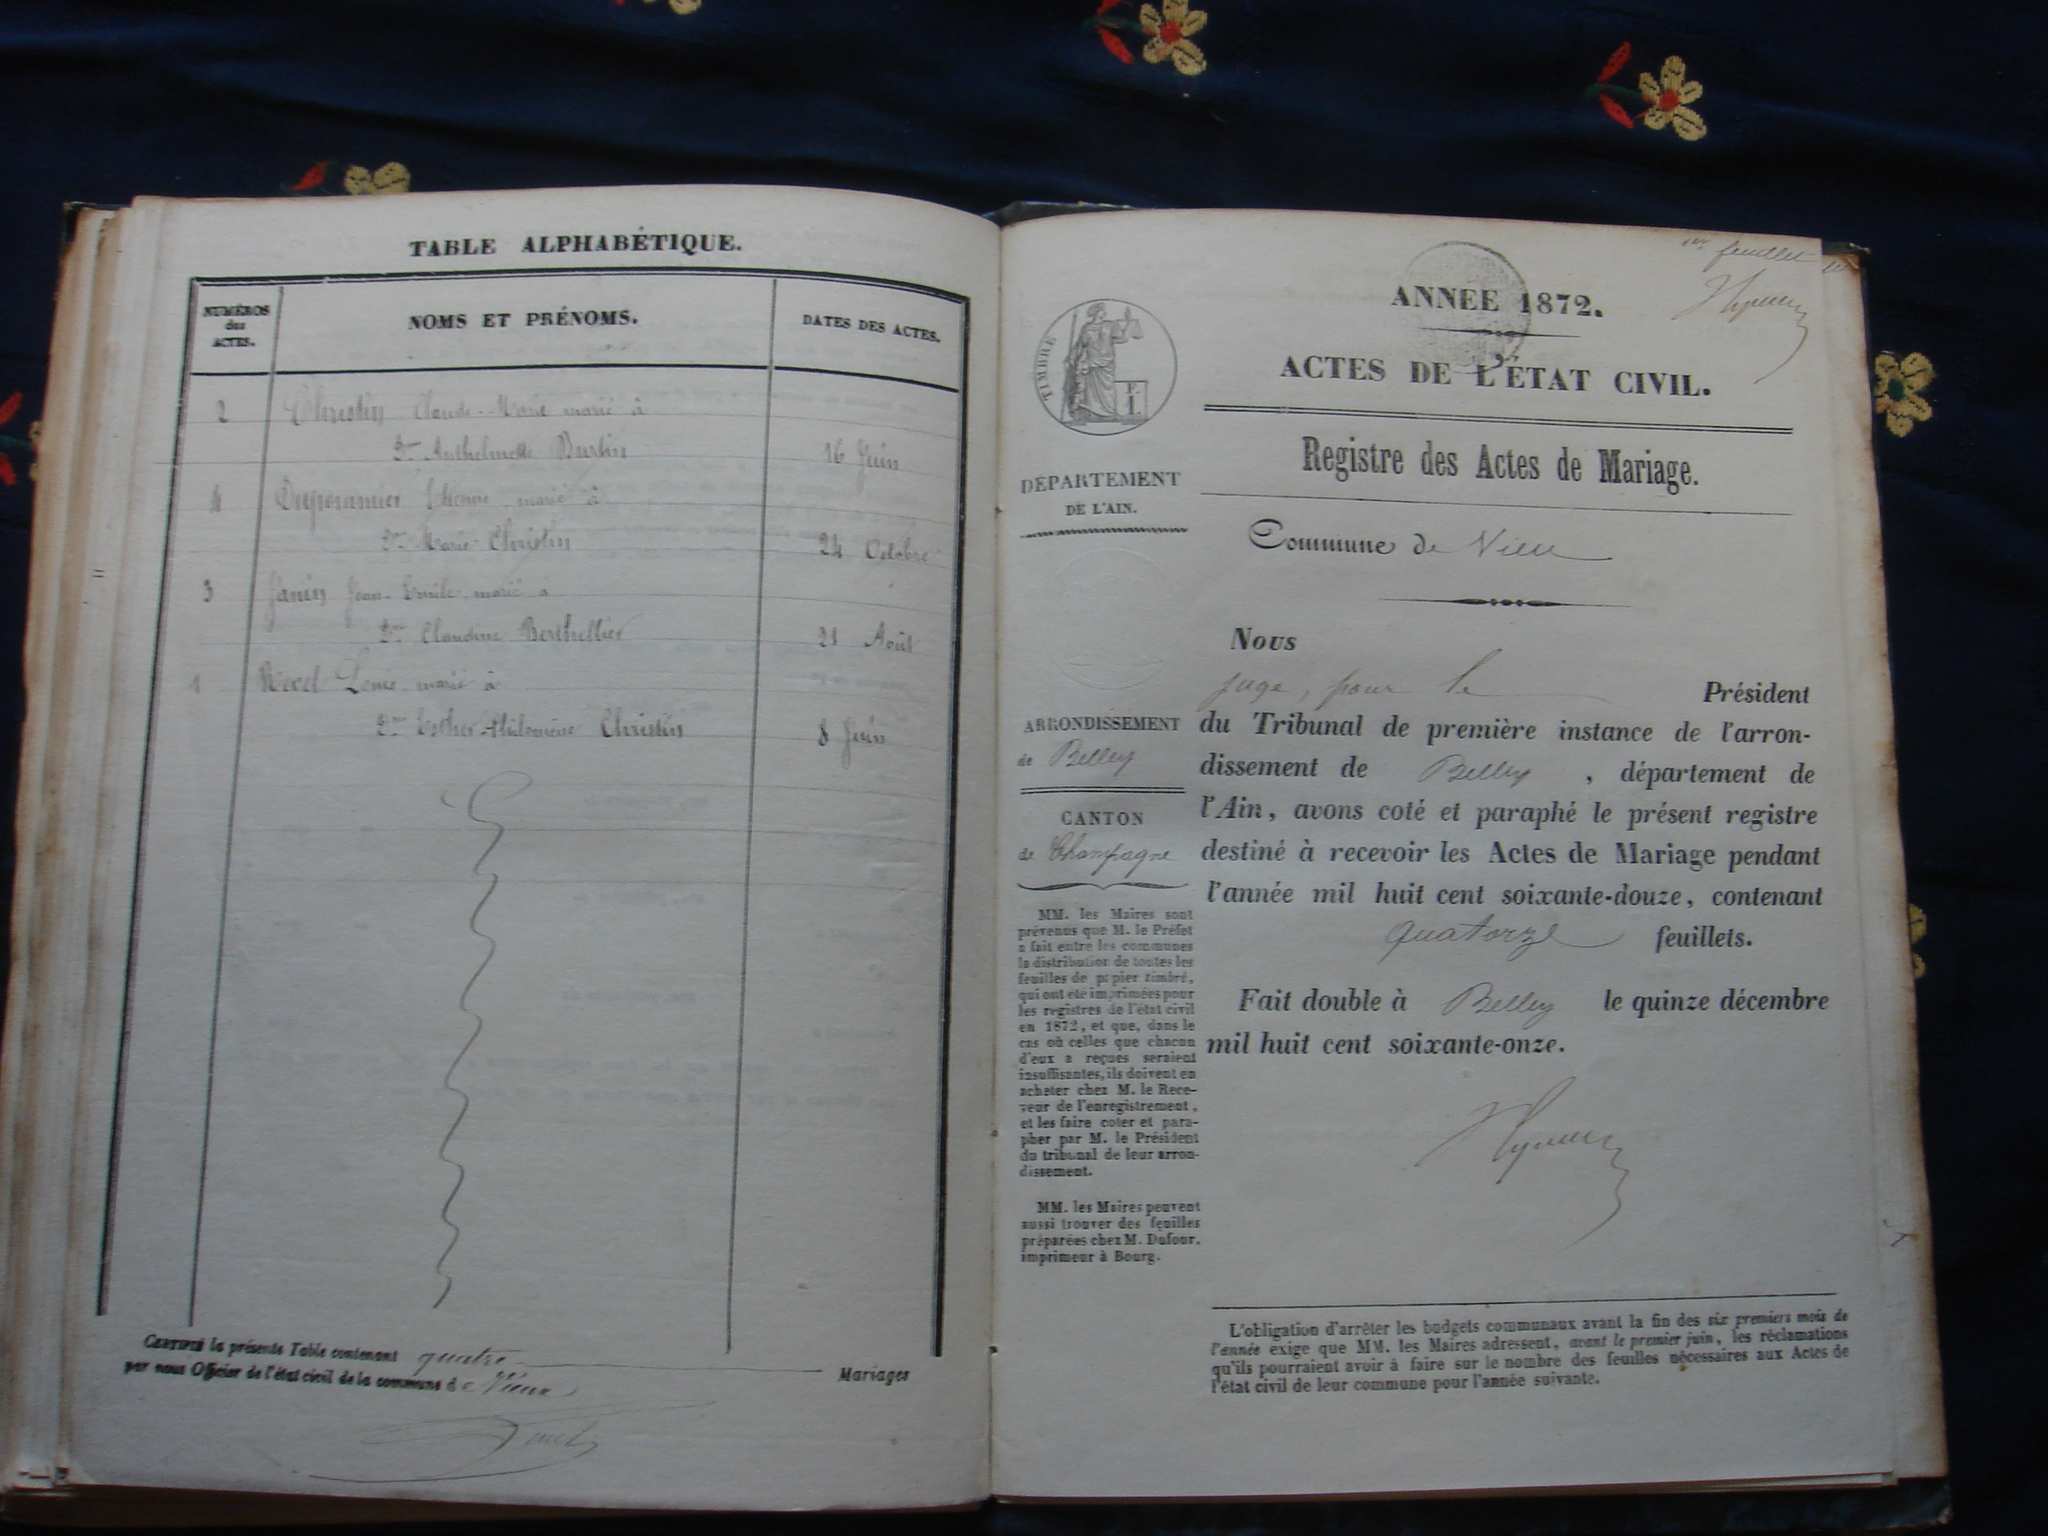 TABLE ALPHABÉTIQUE.
NUMÉROS
des
ACTES.
NOMS ET PRÉNOMS.
DATES DES ACTES.
2 Christin Claude-Marie marié à
Dme Anthelmette Burtin 16 Juin
4 Duporannier Etienne marié à
Dme Marie Christin 24 Octobre
3 Janin Jean-Emile marié à
Dme Claudine Berthellier 21 Août
1 marié à
Dme Esther Philomène Christin 8 Juin
CERTIFIÉ la présente Table contenant quatre Mariages
par nous Officier de l'état civil de la commune de Vieu
1er feuillet
ANNÉE 1872.
ACTES DE L'ÉTAT CIVIL.
Registre des Actes de Mariage.
Commune de Vieu
TIMBRE
DÉPARTEMENT
DE L'AIN.
ARRONDISSEMENT
de Belley
CANTON
de Champagne
MM. les Maires sont
prévenus que M. le Préfet
a fait entre les communes
la distribution de toutes les
feuilles de papier timbré,
qui ont été imprimées pour
les registres de l'état civil
en 1872, et que, dans le
cas où celles que chacun
d'eux a reçues seraient
insuffisantes, ils doivent en
acheter chez M. le Rece-
veur de l'enregistrement,
et les faire coter et para-
pher par M. le Président
du tribunal de leur arron-
dissement.
MM. les Maires peuvent
aussi trouver des feuilles
préparées chez M. Dufour,
imprimeur à Bourg.
Nous
juge, pour le Président
du Tribunal de première instance de l'arron-
dissement de Belley, département de
l'Ain, avons coté et paraphé le présent registre
destiné à recevoir les Actes de Mariage pendant
l'année mil huit cent soixante-douze, contenant
quatorze feuillets.
Fait double à Belley le quinze décembre
mil huit cent soixante-onze.
L'obligation d'arrêter les budgets communaux avant la fin des six premiers mois de
l'année exige que MM. les Maires adressent, avant le premier juin, les réclamations
qu'ils pourraient avoir à faire sur le nombre des feuilles nécessaires aux Actes de
l'état civil de leur commune pour l'année suivante.